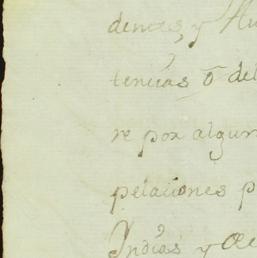 dencias, y Au
tencias o del
re por algun
pelaciones p
Indias y